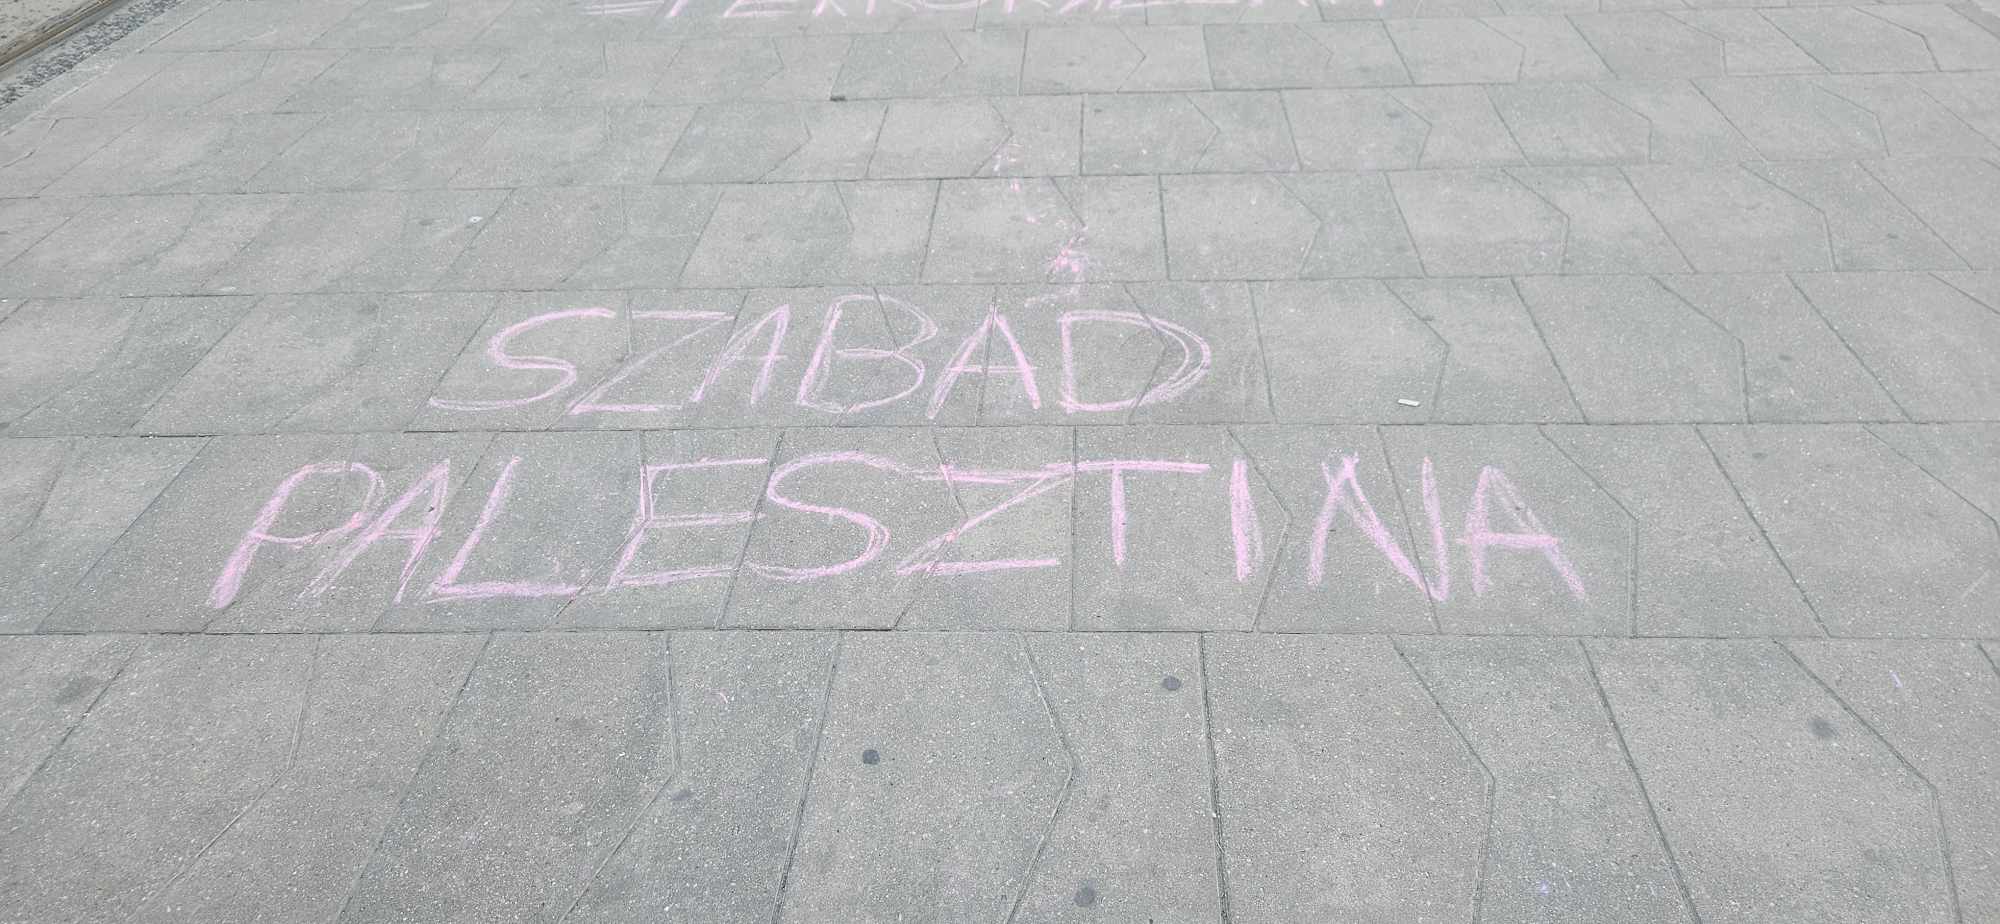 SZABAD
PALESZTINA